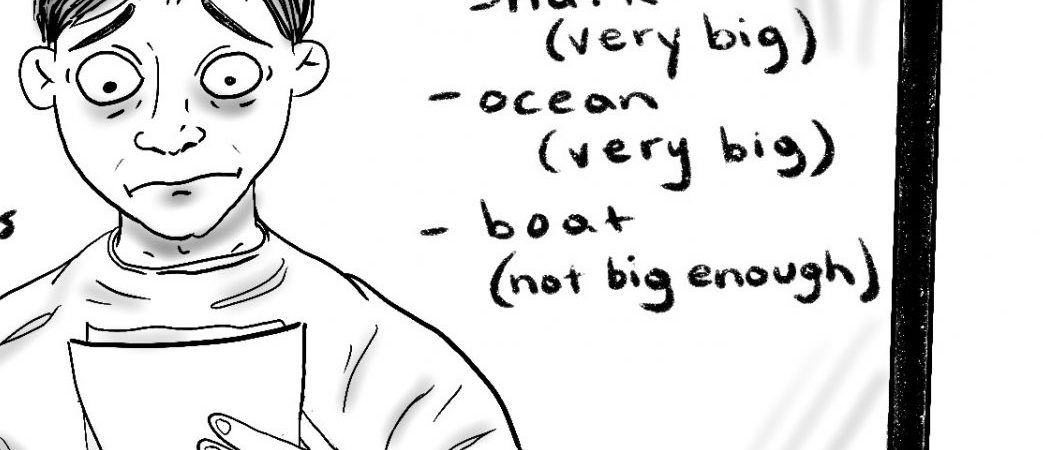 (very big)
- ocean
(very big)
- boat
(not big enough)